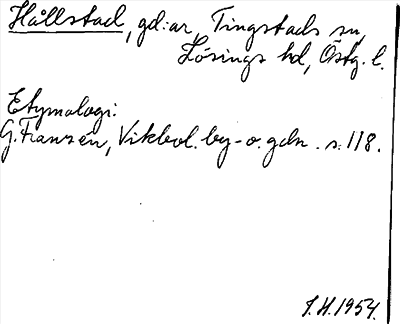 Hållstad, gd:ar, Tingstads sn,
Lösings hd, Östg. l.
Etymologi:
G. Franzén, Vikbol. by- o. gdn. s. 118.
J.H. 1954.